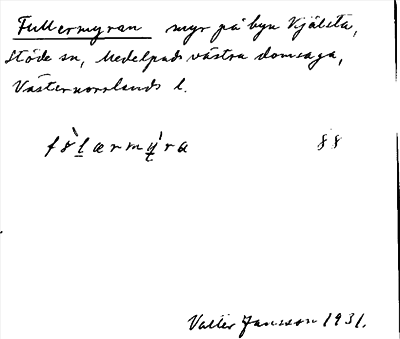 Fullermyran myr på byn Kjälsta,
Stöde sn, Medelpads västra domsaga,
Västernorrlands l.
fòlærmýra 88
Valter Jansson 1931.